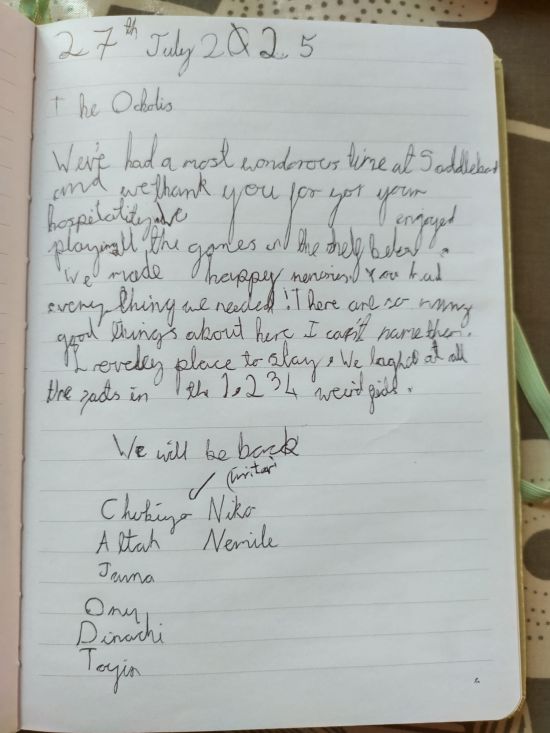 27th July 2025
The Ochdis
We've had a most wonderous time at Saddleback
and we thank you for your
hospitality. We engoyed
playing all the games on the shelf below.
We made happy memories. You had
every thing we needed! There are so many
good things about here I can't name them.
Lovely place to stay. We laghed at all
the facts in the 1,234 weird
We will be back
(writer)
Chukiya Niko
Altah Nemile
Jama
Ony
Dinachi
Toyin